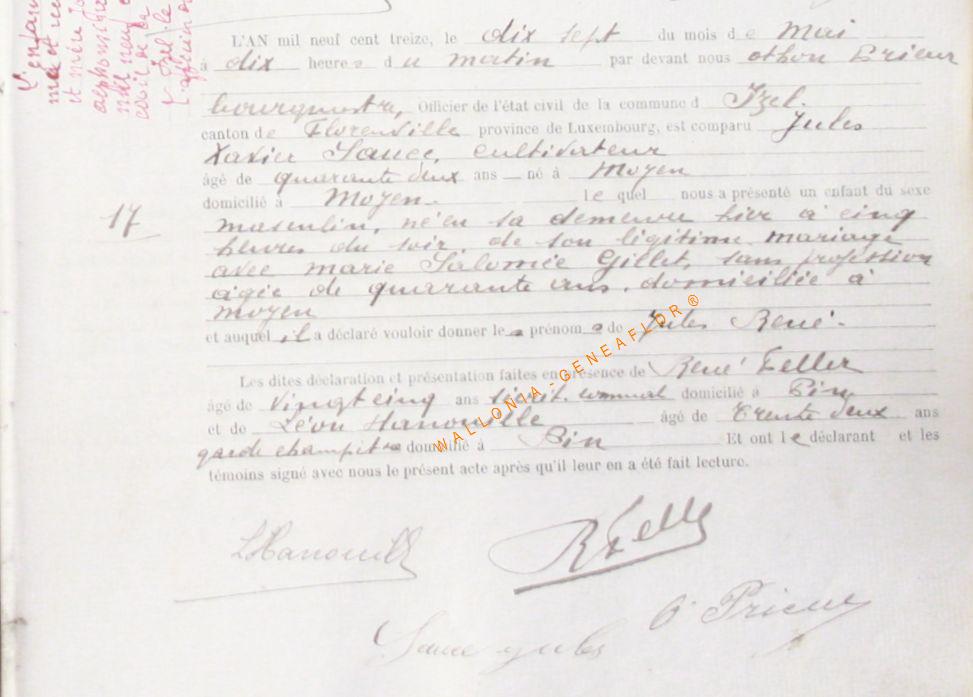 L'enfa
et
L'AN mil neuf cent treize, le dix sept du mois de Mai
à dix heures du matin par devant nous Othon Prieur
bourgmestre, Officier de l'état civil de la commune d Izel.
canton de Florenville province de Luxembourg, est comparu Jules
Xavier Sauce, cultivateur
âgé de quarante deux ans né à Moyen
domicilié à Moyen. lequel nous a présenté un enfant du sexe
17
masculin, né en sa demeure hier à cinq
heures du soir, de son légitime mariage
avec marie Salomée Gillet, sans profession
agée de quarante ans, domiciliée à
moyen
et auquel il a déclaré vouloir donner les prénoms de Jules René.
Les dites déclaration et présentation faites en présence de René Feller
âgé de vingt cinq ans secrét. communal domicilié à Pin
et de Léon Hanouille âgé de Trente deux ans
garde champêtre domicilié à Pin Et ont le déclarant et les
témoins signé avec nous le présent acte après qu'il leur en a été fait lecture.
WALLONIA-GENEAFLOR®
LHanouill
RFelle
O Prieur
Sauce Jules